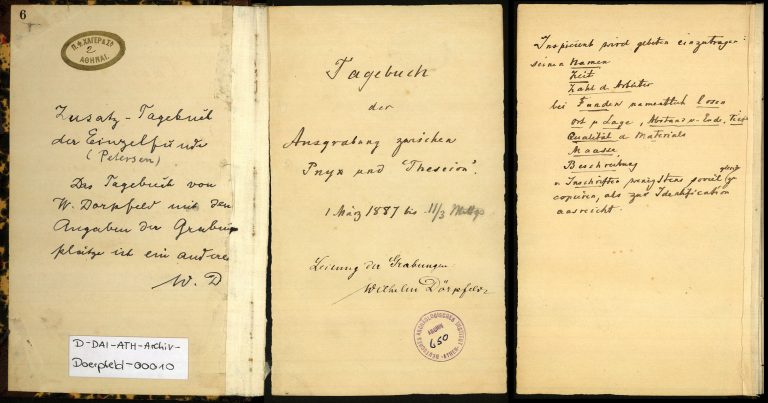 6
Π. Φ. ΧΑΓΕΡ & ΣΑ
2
ΑΘΗΝΑΙ.
Zusatz-Tagebuch
der Einzelfunde
(Petersen)
Das Tagebuch von
W. Dörpfeld mit den
Angaben der Grabungs
plätze ist ein anderes
W. D
D-DAI-ATH-Archiv-
Doerpfeld-00010
Tagebuch
der
Ausgrabung zwischen
Pnyx und "Theseion".
1 März 1887 bis 11/3 Mittgs
Leitung der Grabungen:
Wilhelm Dörpfeld
ARCHÄOLOGISCHES INSTITUT
650
ATHEN
Inspicient wird gebeten einzutragen:
seinen Namen
Zeit
Zahl d. Arbeiter
bei Funden namentlich losen
Ort u Lage, Abstand v. Ende, Tiefe
Qualität d Materials
Maasse
Beschreibung
v. Inschriften wenigstens soviel gleich zu
copiren, als zur Identification
ausreicht.